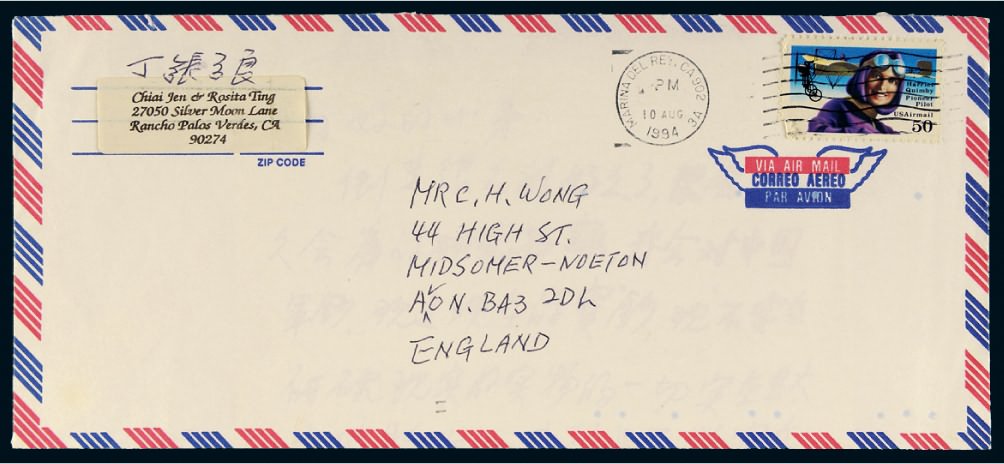 丁張良
Chiai Jen & Rosita Ting
27050 Silver Moon Lane
Rancho Palos Verdes, CA
90274
ZIP CODE
MARINA DEL REY, CA 902 3A
PM
10 AUG
1994
Harriet
Quimby
Pioneer
Pilot
USAirmail
50
VIA AIR MAIL
CORREO AEREO
PAR AVION
MR C. H. WONG
44 HIGH ST.
MIDSOMER-NOETON
AVON. BA3 2DL
ENGLAND
11